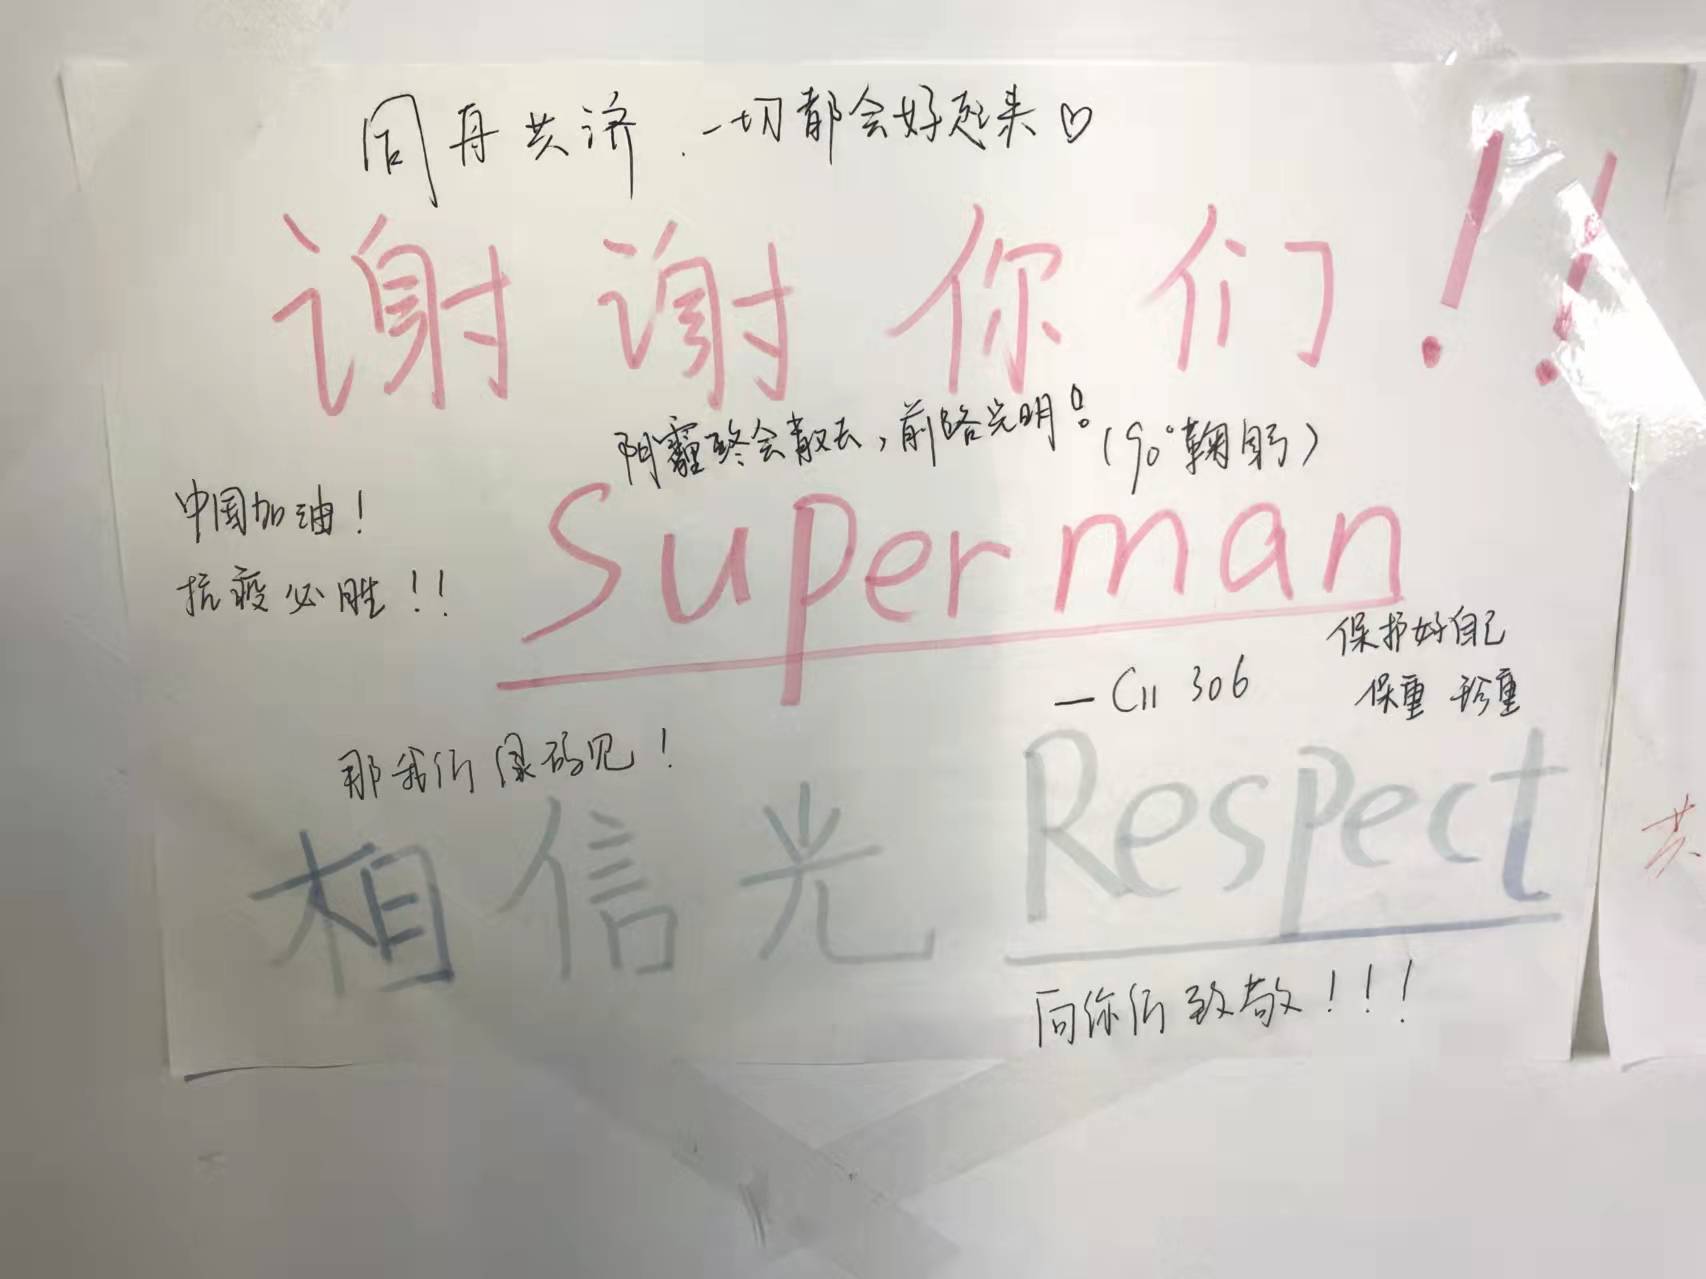 同舟共济.一切都会好起来♡
谢谢你们!!
阴霾终会散去,前路光明!
(90°鞠躬)
中国加油!
抗疫必胜!!
Superman
保护好自己
保重 珍重
—C11 306
那我们绿码见!
相信光
Respect
向你们致敬!!!
共